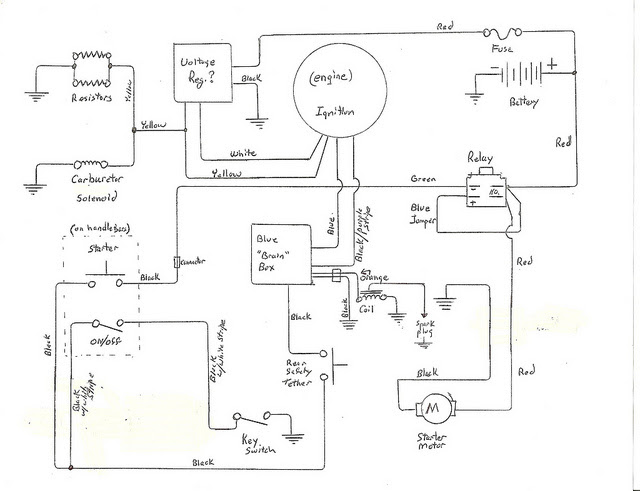 Red
Fuse
Voltage
Reg.?
Black
(engine)
Ignition
− +
Battery
Resistors
Yellow
Yellow
White
Yellow
Carburetor
Solenoid
Red
Relay
Green
N.O.
Blue
Jumper
(on handlebars)
Starter
Black
connector
Blue
Black/purple
stripe
Blue
"Brain"
Box
Orange
Black
Coil
Spark
plug
Red
Black
ON/OFF
Black
Black
w/white
stripe
Black
w/white stripe
Rear
Safety
Tether
Black
Red
M
Starter
Motor
Key
Switch
Black